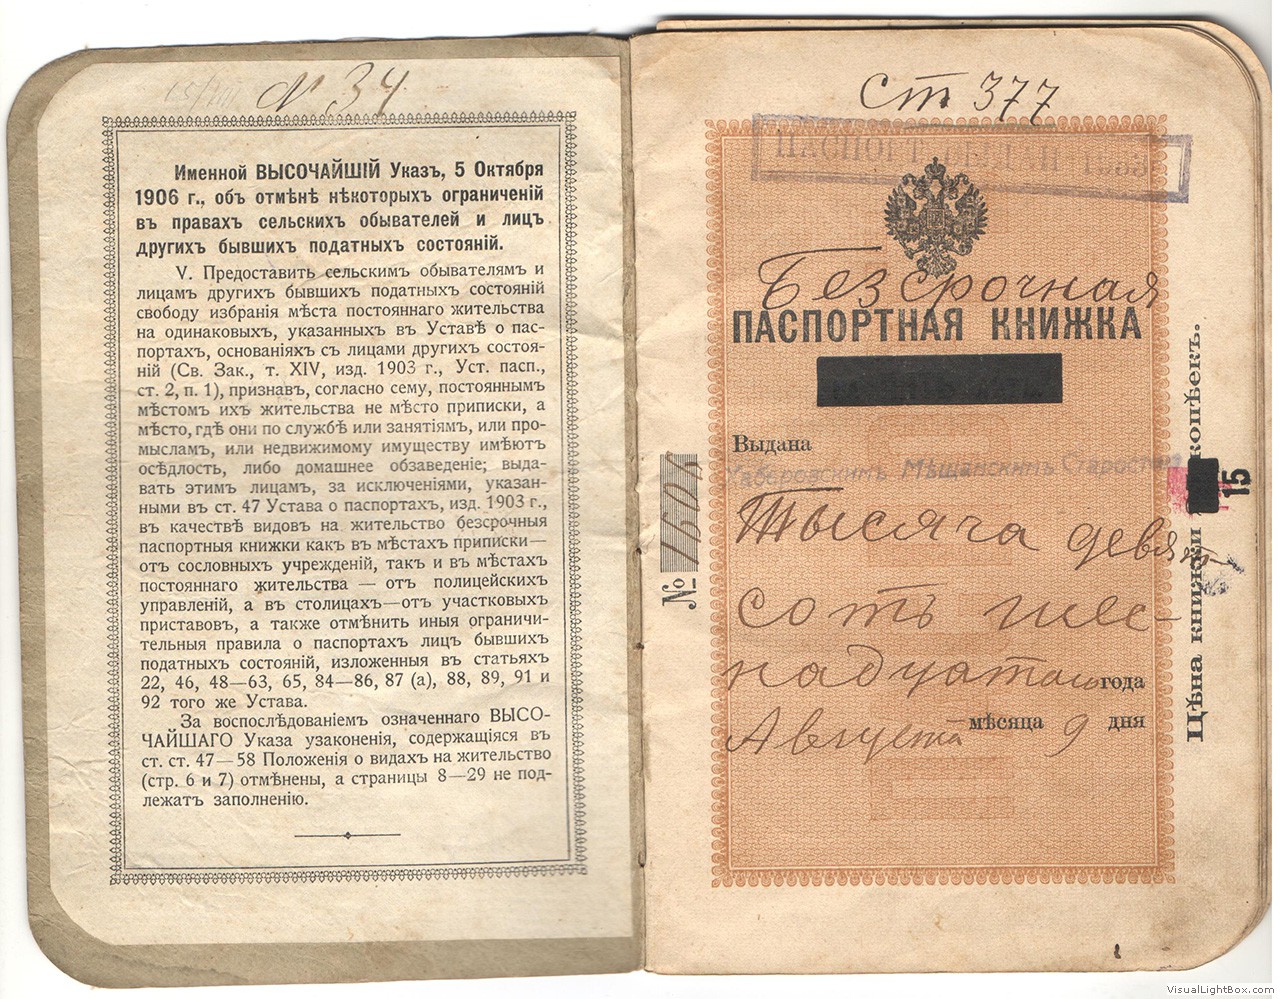 N 34
Именной ВЫСОЧАЙШІЙ Указъ, 5 Октября
1906 г., объ отмѣнѣ нѣкоторыхъ ограниченій
въ правахъ сельскихъ обывателей и лицъ
другихъ бывшихъ податныхъ состояній.
V. Предоставить сельскимъ обывателямъ и
лицамъ другихъ бывшихъ податныхъ состояній
свободу избранія мѣста постояннаго жительства
на одинаковыхъ, указанныхъ въ Уставѣ о пас-
портахъ, основаніяхъ съ лицами другихъ состоя-
ній (Св. Зак., т. XIV, изд. 1903 г., Уст. пасп.,
ст. 2, п. 1), признавъ, согласно сему, постояннымъ
мѣстомъ ихъ жительства не мѣсто приписки, а
мѣсто, гдѣ они по службѣ или занятіямъ, или про-
мысламъ, или недвижимому имуществу имѣютъ
осѣдлость, либо домашнее обзаведеніе; выда-
вать этимъ лицамъ, за исключеніями, указан-
ными въ ст. 47 Устава о паспортахъ, изд. 1903 г.,
въ качествѣ видовъ на жительство безсрочныя
паспортныя книжки какъ въ мѣстахъ приписки—
отъ сословныхъ учрежденій, такъ и въ мѣстахъ
постояннаго жительства — отъ полицейскихъ
управленій, а въ столицахъ—отъ участковыхъ
приставовъ, а также отмѣнить иныя ограничи-
тельныя правила о паспортахъ лицъ бывшихъ
податныхъ состояній, изложенныя въ статьяхъ
22, 46, 48—63, 65, 84—86, 87 (а), 88, 89, 91 и
92 того же Устава.
За воспослѣдованіемъ означеннаго ВЫСО-
ЧАЙШАГО Указа узаконенія, содержащіяся въ
ст. ст. 47—58 Положенія о видахъ на жительство
(стр. 6 и 7) отмѣнены, а страницы 8—29 не под-
лежатъ заполненію.
Ст 377
Безсрочная
ПАСПОРТНАЯ КНИЖКА
Выдана
Хабаровскимъ Мѣщанскимъ Старостой
Тысяча девять
сотъ шес-
надцатаго года
Августа мѣсяца 9 дня
№ 1604
Цѣна книжки 15 копѣекъ.
VisualLightBox.com